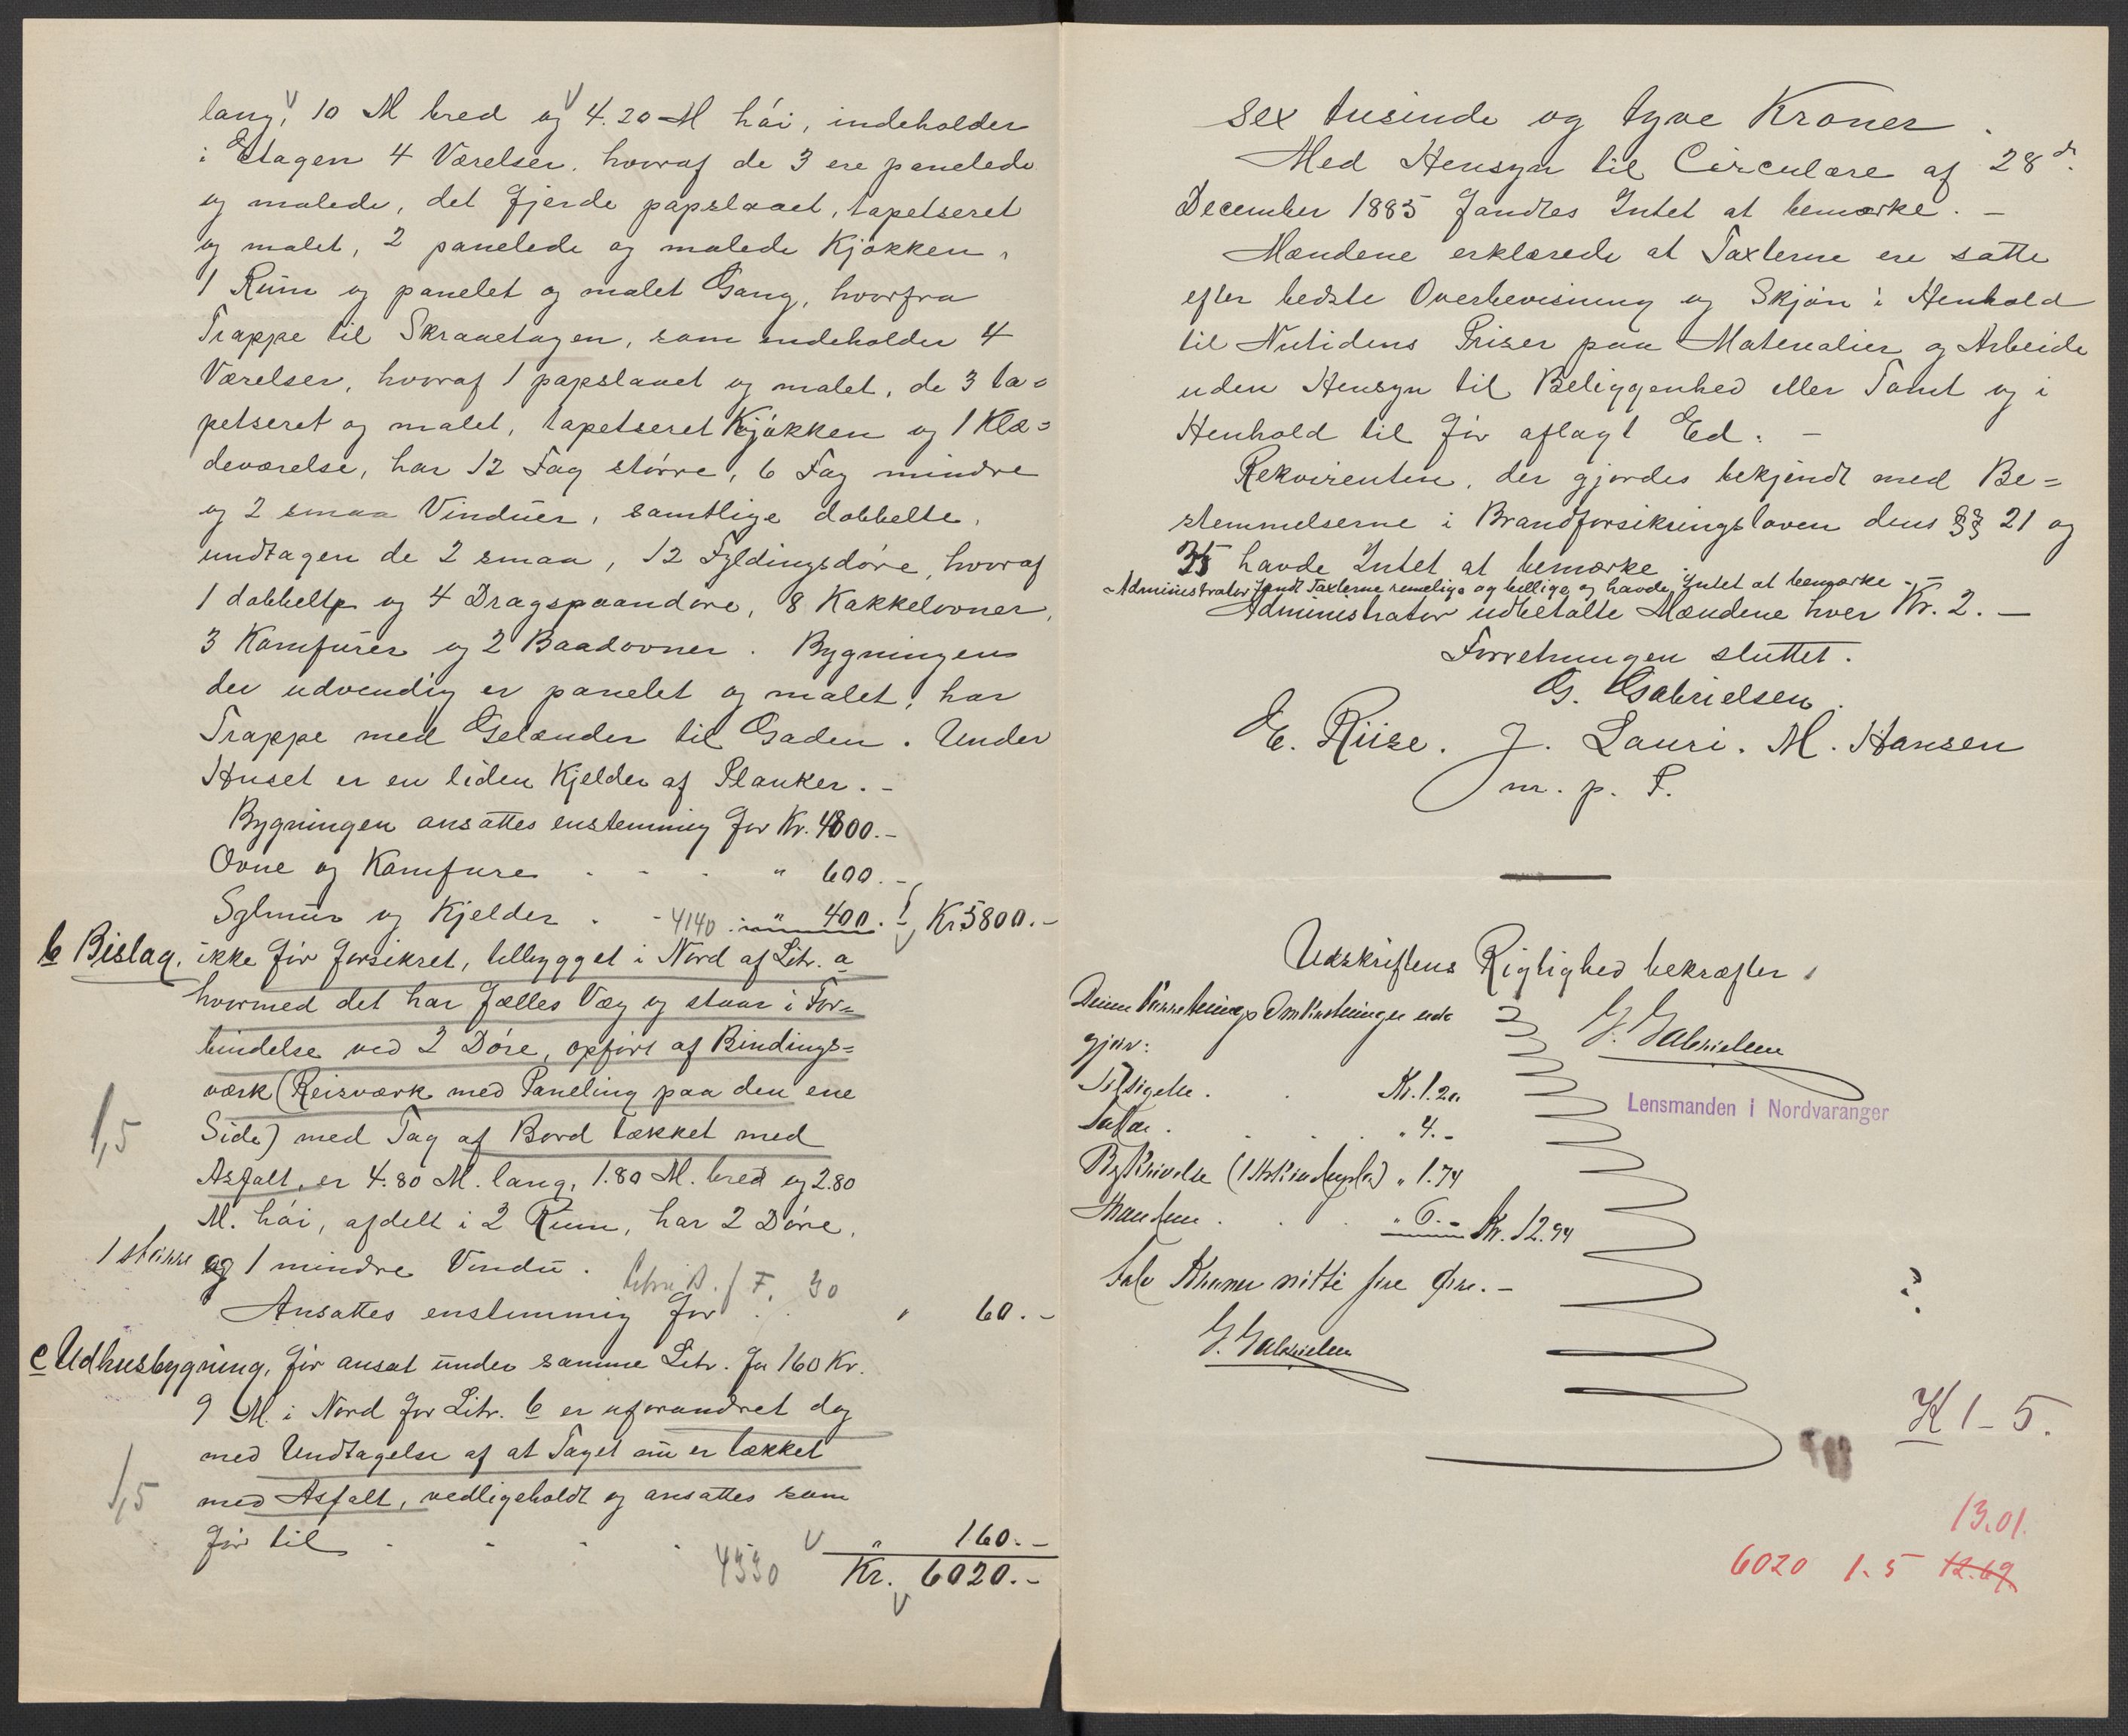 lang, 10 M bred og 4.20 M hói, indeholder
i Etagen 4 Værelser, hvoraf de 3 ere panelede
og malede, det fjerde papslaaet, tapetseret
og malet, 2 panelede og malede Kjøkken,
1 Rum og panelet og malet Gang, hvorfra
Trappe til Skraaetagen, som indeholder 4
Værelser, hvoraf 1 papslaaet og malet, de 3 ta=
petseret og malet, tapetseret Kjøkken og 1 Klæ=
deværelse, har 12 Fag større, 6 Fag mindre
og 2 smaa Vinduer, samtlige dobbelte,
undtagen de 2 smaa, 12 Fyldingsdøre, hvoraf
1 dobbelte og 4 Dragspaandøre, 8 Kakkelovner,
3 Komfurer og 2 Baadovner. Bygningen
der udvendig er panelet og malet, har
Trappe med Gelænder til Gaden. Under
Huset er en liden Kjelder af Planker. -
Bygningen ansattes enstemmig for Kr. 4800.-
Ovne og Komfure . - . " 600.-
Sylmur og Kjelder . - 4140 . " 400.- Kr 5800.-
b Bislag, ikke før forsikret, tilbygget i Nord af Litr. a
hvormed det har fælles Væg og staar i For=
bindelse ved 2 Døre, opført af Bindings=
værk (Reisværk med Paneling paa den ene
1,5 Side) med Tag af Bord tækket med
Asfalt, er 4.80 M. lang, 1.80 M. bred og 2.80
M. hói, afdelt i 2 Rum, har 2 Døre,
1 større og 1 mindre Vindu. F. 30
Ansattes enstemmig for . . " 60.-
c Udhusbygning, før ansat under samme Litr. for 160 Kr.
9 M. i Nord for Litr. b er uforandret dog
med Undtagelse af at Taget nu er tækket
1,5 med Asfalt, vedligeholdt og ansattes som
før til . - . . " 160.-
4330 Kr. 6020.-
sex tusinde og tyve Kroner.
Med Hensyn til Circulære af 28de
December 1885 fandtes Intet at bemærke. -
Mændene erklærede at Taxterne ere satte
efter bedste Overbevisning og Skjøn i Henhold
til Nutidens Priser paa Materialier og Arbeide
uden Hensyn til Beliggenhed eller Tomt og i
Henhold til før aflagt Ed. -
Rekvirenten, der gjordes bekjendt med Be=
stemmelserne i Brandforsikringsloven dens §§ 21 og
35 havde Intet at bemærke.
Administrator fandt Taxterne rimelige og billige og havde Intet at bemærke. -
Administrator udbetalte Mændene hver Kr. 2. -
Forretningen sluttet.
G. Gabrielsen.
E. Riise. J. Lauri. M. Hansen
m. p. P.
Udskriftens Rigtighed bekræfter
G. Gabrielsen
Lensmanden i Nordvaranger
Denne Forretnings Omkostninger ud=
gjør:
Tilsigelse . . Kr. 1.20
Salær . . . . " 4.-
Beskrivelse " 1.74
Mændene . . . " 6.- Kr. 12.94
Tolv Kroner nitti fire Øre. -
G. Gabrielsen
?
K 1-5.
13.01.
6020 1.5 12.69